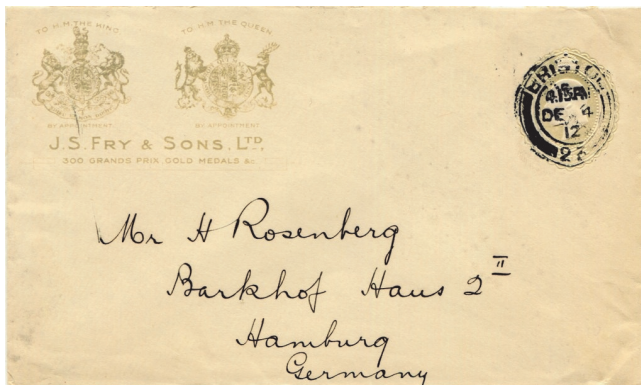 TO H.M. THE KING
TO H.M. THE QUEEN
BY APPOINTMENT.
BY APPOINTMENT
J.S. FRY & SONS, LTD.
300 GRANDS PRIX, GOLD MEDALS &c.
BRISTOL
4.15 PM
DE 4
12
Mr H Rosenberg
Barkhof Haus 2 II
Hamburg
Germany